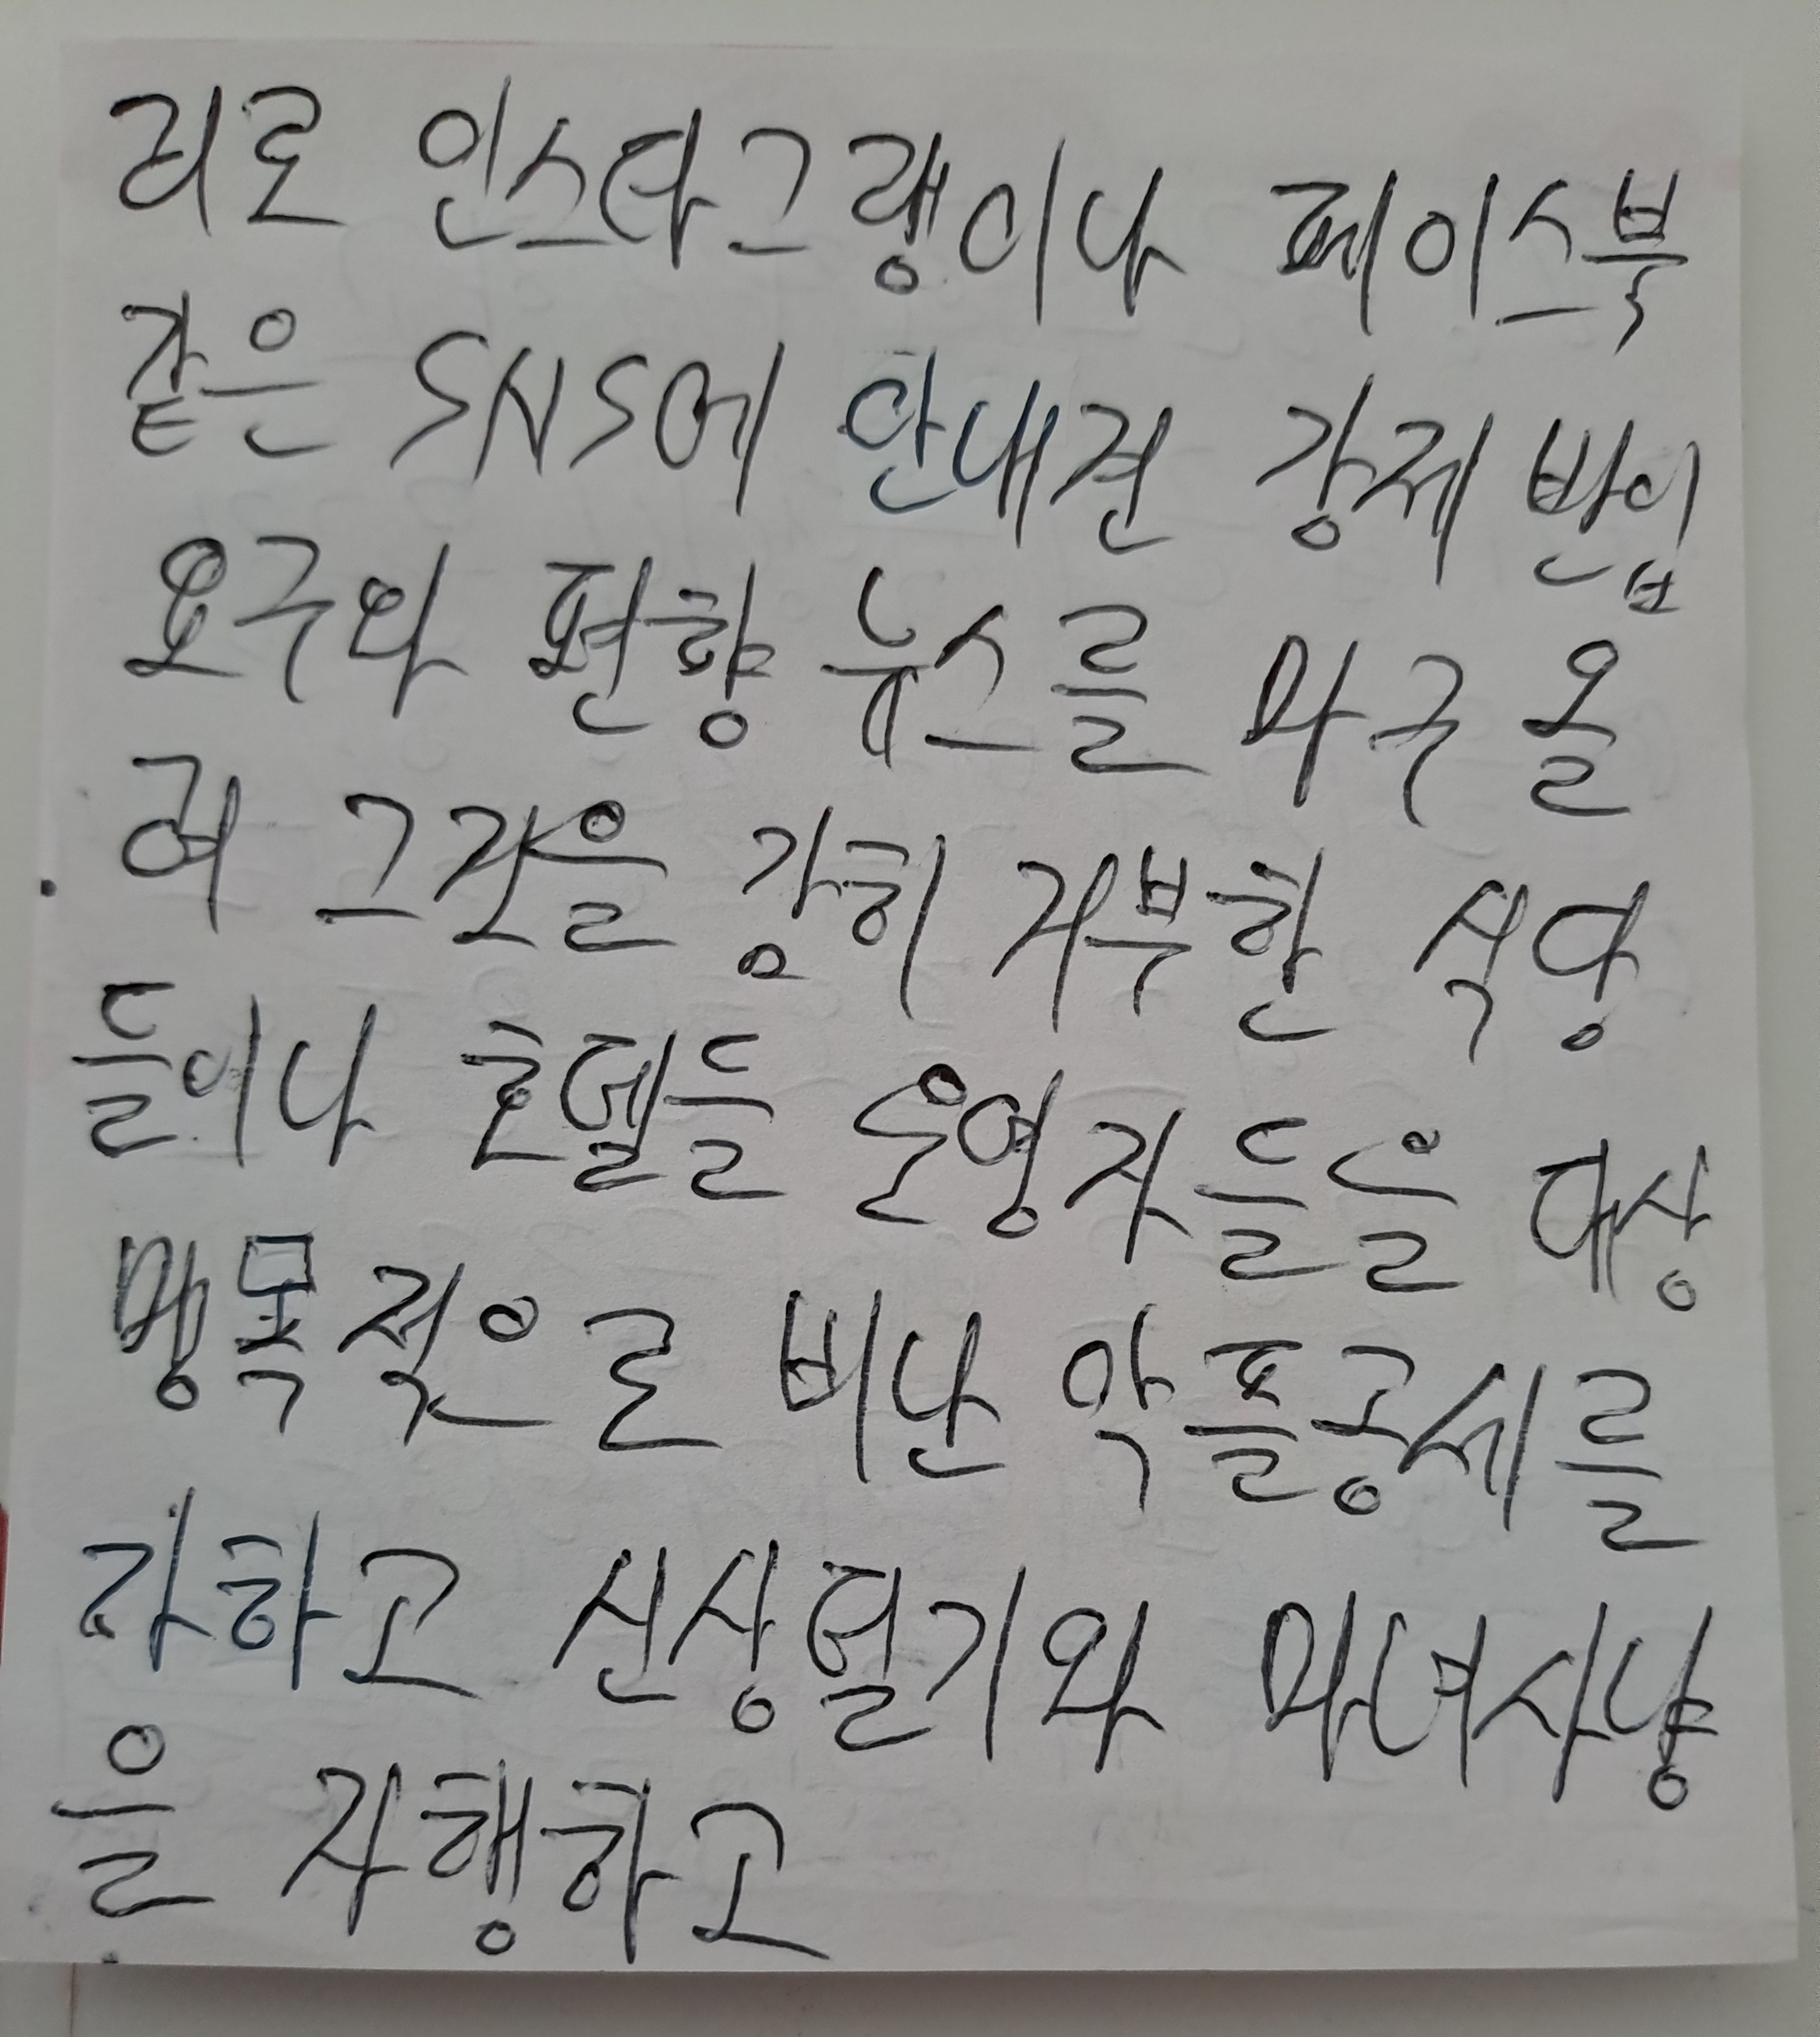 리로 인스타그램이나 페이스북
같은 SNS에 안내견 강제 반입
요구와 편향 뉴스를 마구 올
려 그것을 감히 거부한 식당
들이나 호텔들 운영자들을 대상
명목적으로 비난 악플공세를
가하고 신상털기와 마녀사냥
을 자행하고